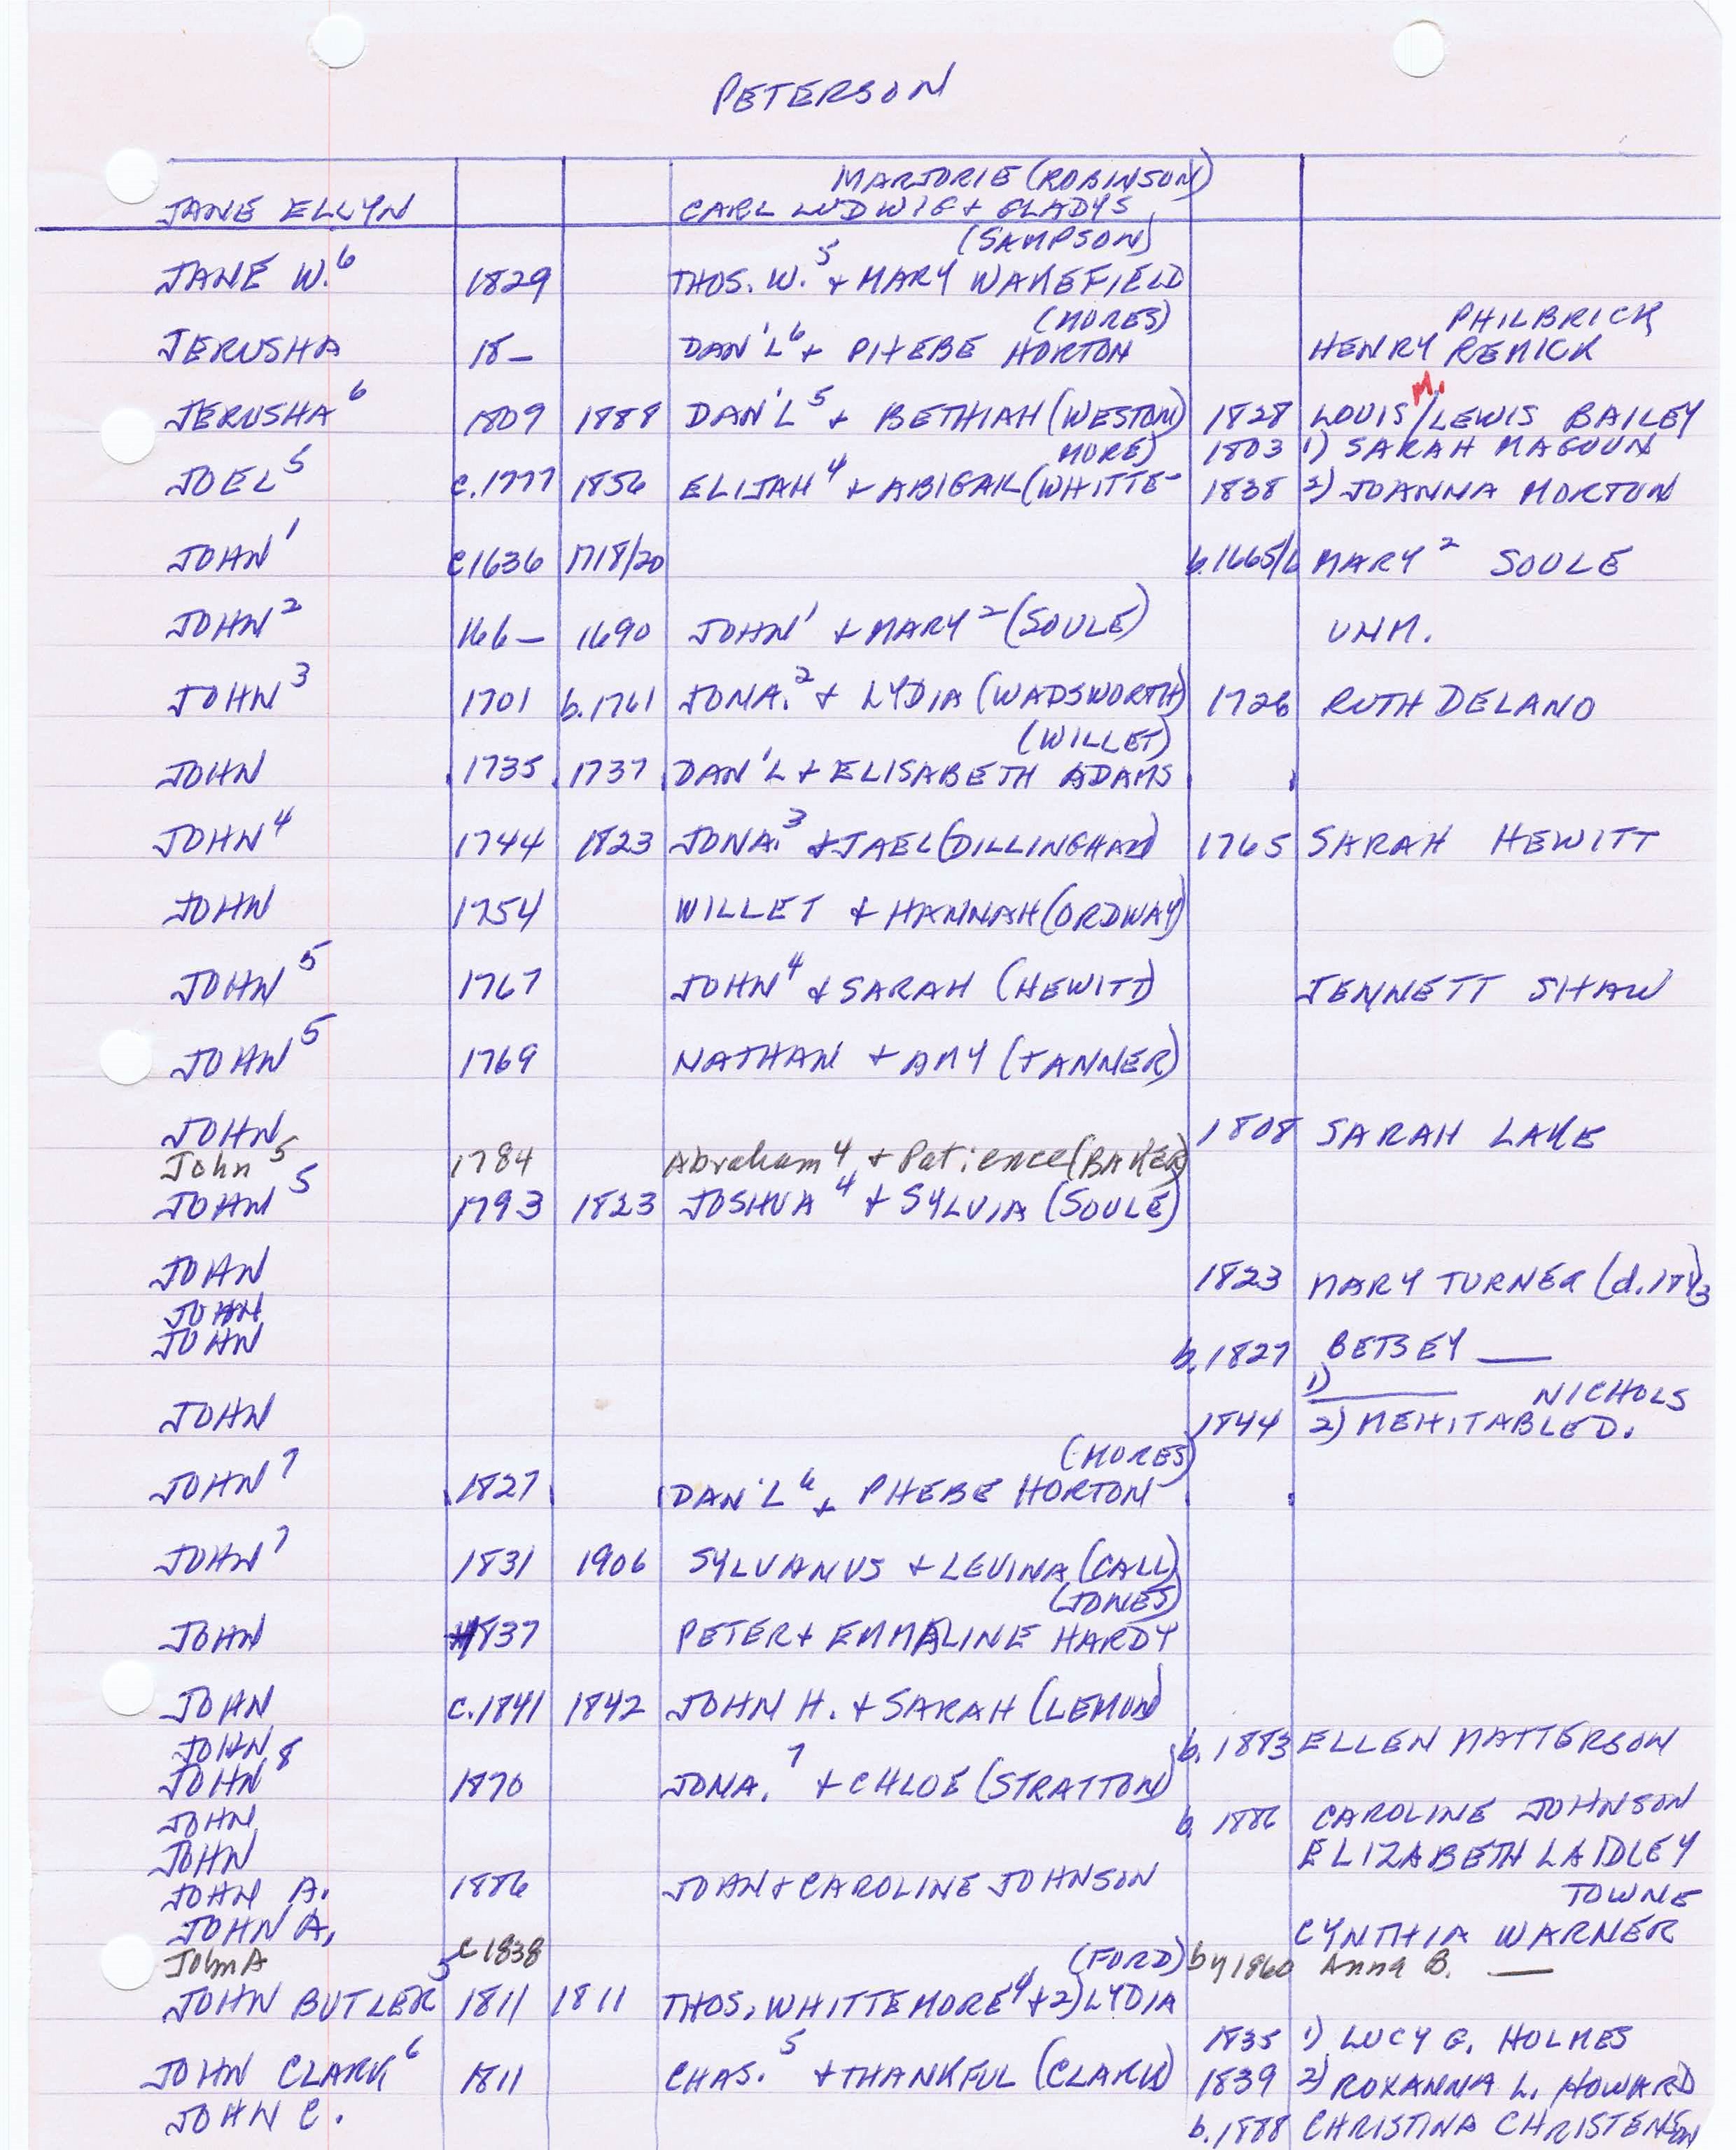 PETERSON
MARJORIE (ROBINSON)
JANE ELLYN CARL LUDWIG + GLADYS
(SAMPSON)
JANE W.⁶ 1829 THOS. W.⁵ + MARY WAKEFIELD
(MORES) PHILBRICK
JERUSHA 18— DAN'L⁶ + PHEBE HORTON HENRY REMICK
M.
JERUSHA⁶ 1809 1888 DAN'L⁵ + BETHIAH (WESTON) 1828 LOUIS/LEWIS BAILEY
MORE) 1803 1) SARAH MAGOUN
JOEL⁵ c.1777 1856 ELIJAH⁴ + ABIGAIL (WHITTE- 1838 2) JOANNA MORTON
JOHN¹ c1636 1718/20 b.1665/6 MARY² SOULE
JOHN² 166— 1690 JOHN¹ + MARY² (SOULE) UNM.
JOHN³ 1701 b.1761 JONA.² + LYDIA (WADSWORTH) 1726 RUTH DELANO
(WILLET)
JOHN 1735 1737 DAN'L + ELISABETH ADAMS
JOHN⁴ 1744 1823 JONA.³ + JAEL (DILLINGHAM) 1765 SARAH HEWITT
JOHN 1754 WILLET + HANNAH (ORDWAY)
JOHN⁵ 1767 JOHN⁴ + SARAH (HEWITT) JENNETT SHAW
JOHN⁵ 1769 NATHAN + AMY (TANNER)
JOHN 1808 SARAH LAKE
John⁵ 1784 Abraham⁴ + Patience (BAKER)
JOHN⁵ 1793 1823 JOSHUA⁴ + SYLVIA (SOULE)
JOHN 1823 MARY TURNER (d.
JOHN
JOHN b.1827 BETSEY —
1) — NICHOLS
JOHN 1844 2) MEHITABLE D.
(MORES)
JOHN⁷ 1827 DAN'L⁶ + PHEBE HORTON
JOHN⁷ 1831 1906 SYLVANUS + LEVINA (CALL)
(JONES)
JOHN 1837 PETER + EMMALINE HARDY
JOHN c.1841 1842 JOHN H. + SARAH (LEMON)
JOHN b.1883 ELLEN MATTERSON
JOHN⁸ 1870 JONA.⁷ + CHLOE (STRATTON)
JOHN b.1886 CAROLINE JOHNSON
JOHN ELIZABETH LAIDLEY
JOHN A. 1886 JOHN + CAROLINE JOHNSON TOWNE
JOHN A. CYNTHIA WARNER
John A c1838 (FORD) by 1860 Anna B. —
JOHN BUTLER⁵ 1811 1811 THOS. WHITTEMORE⁴ + 2) LYDIA
1835 1) LUCY G. HOLMES
JOHN CLARK⁶ 1811 CHAS.⁵ + THANKFUL (CLARK) 1839 2) ROXANNA L. HOWARD
JOHN C. b.1888 CHRISTINA CHRISTENSON